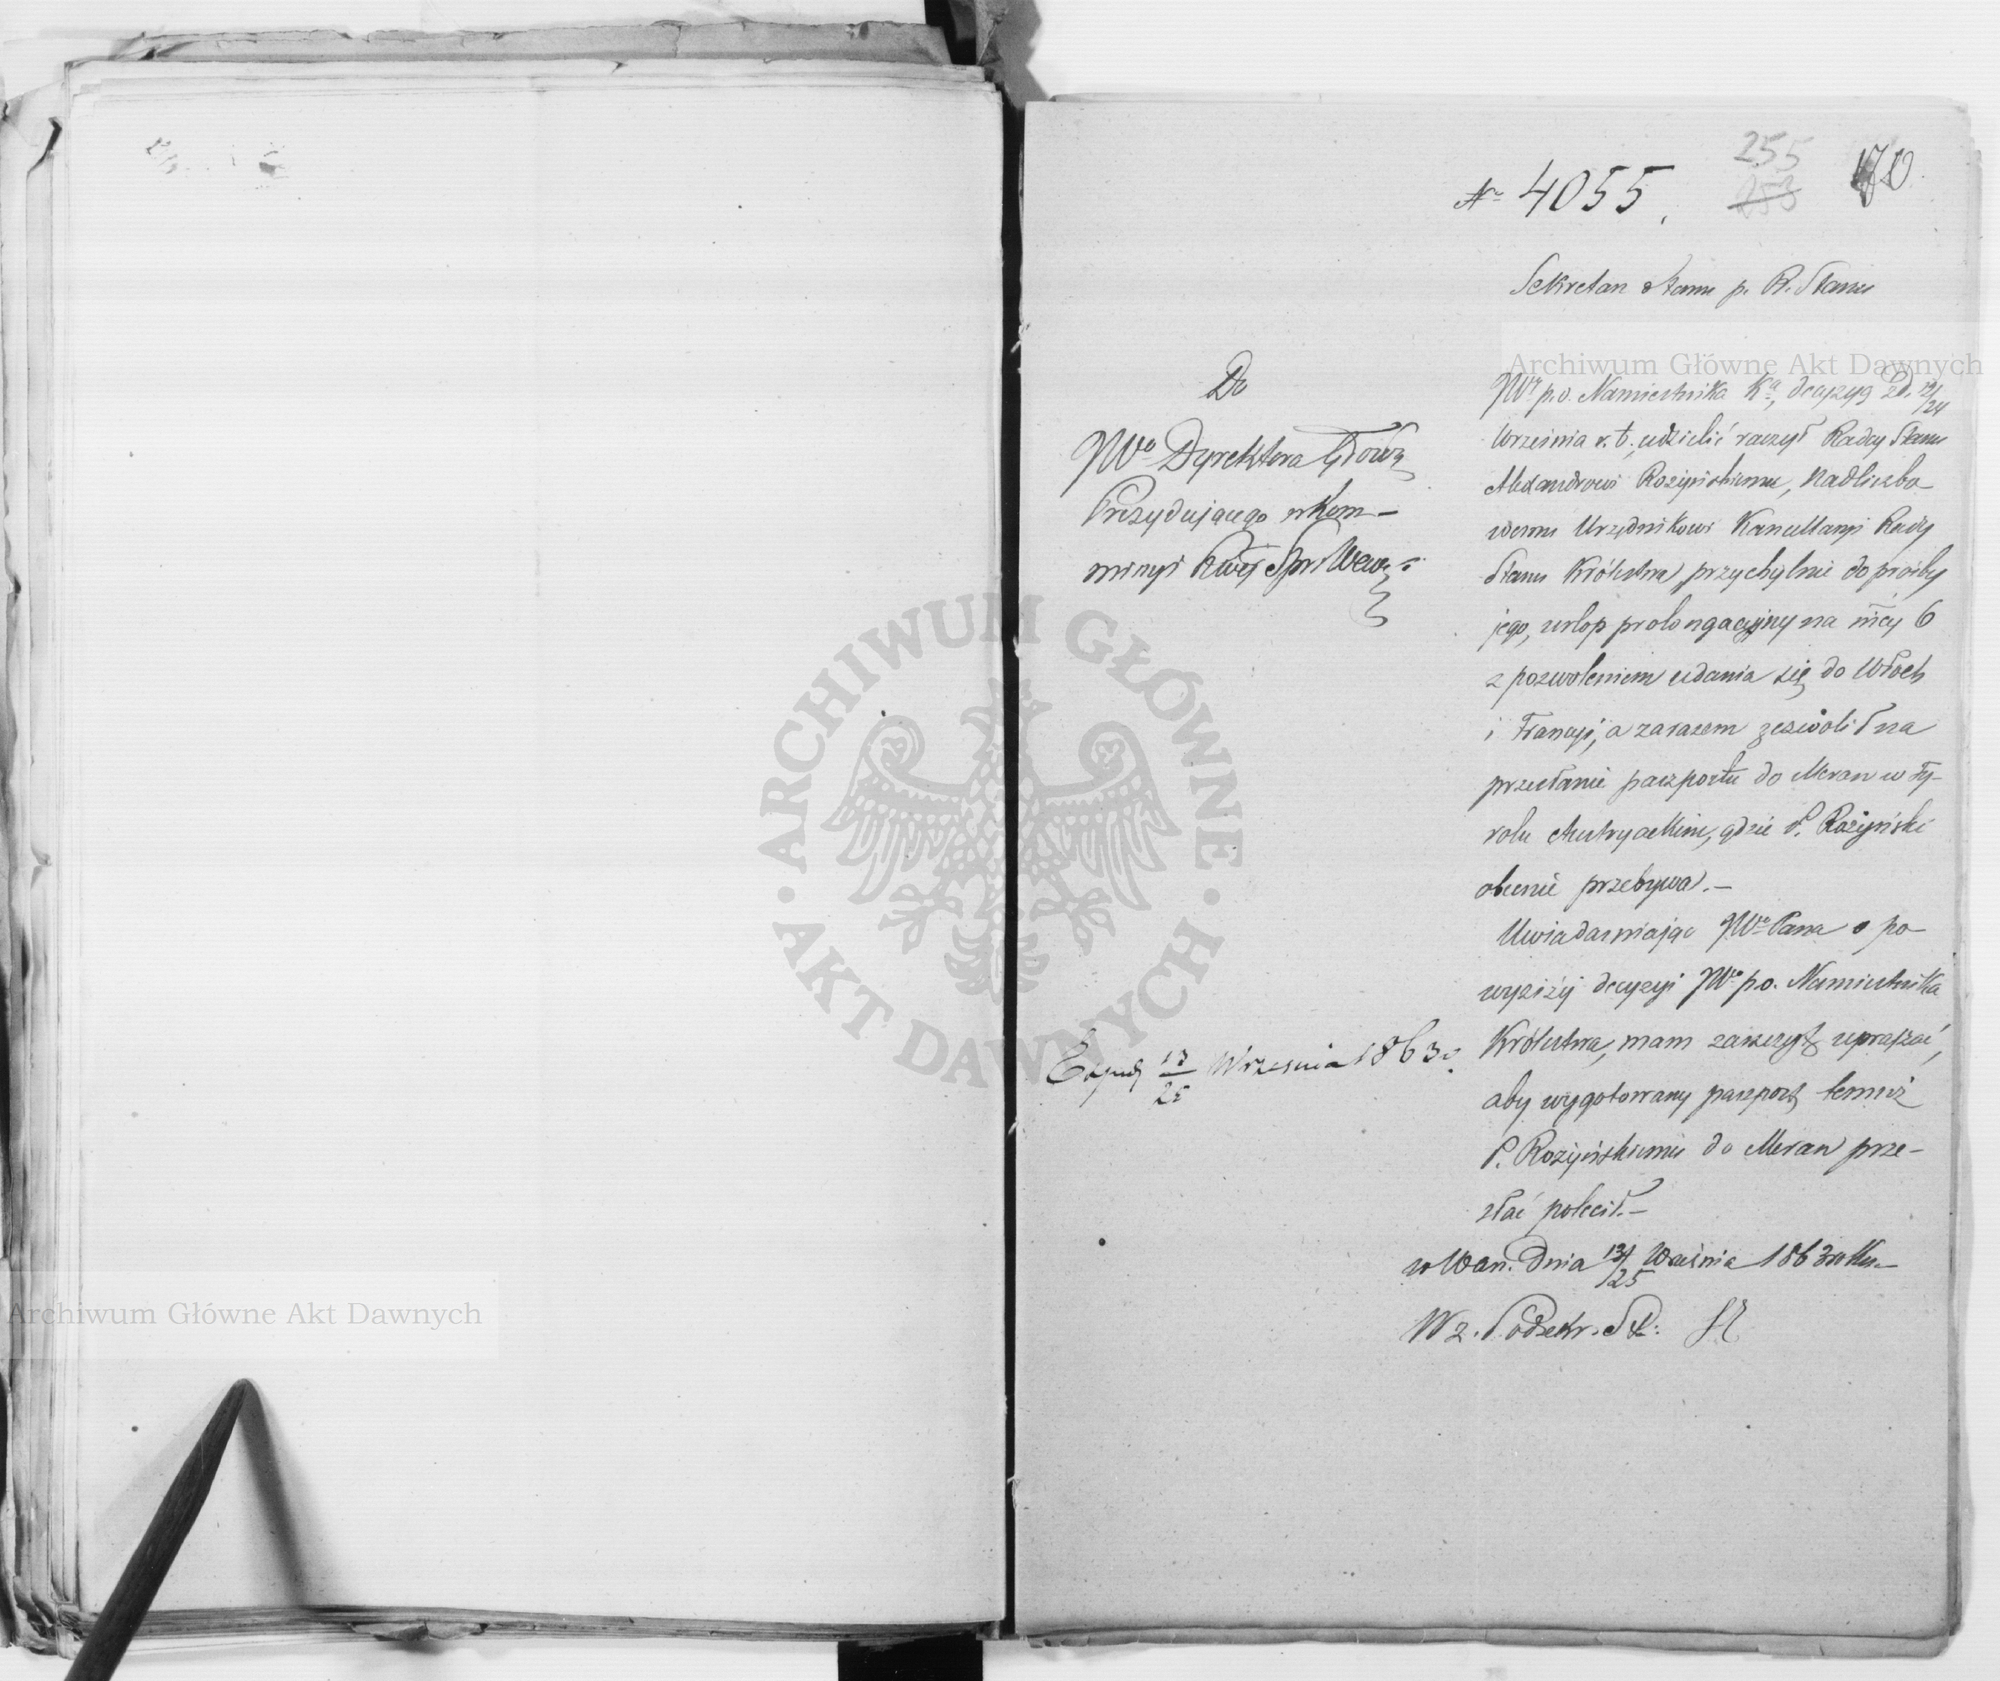 255
253
170
№ 4055.
Sekretarz Stanu p. R. Stanu
Do
JWo Dyrektora Głowo
Prezydującego w Kom-
missyi Rwej Spr. Wewn.
JWy p.o. Namiestnika Ka, decyzyą z d. 12/24
Września r. b. udzielić raczył Radcy Stanu
Alexandrowi Rożyńskiemu, nadliczbo-
wemu Urzędnikowi Kancellaryi Rady
Stanu Królestwa, przychylnie do prośby
jego, urlop prolongacyjny na m̃cy 6
z pozwoleniem udania się do Włoch
i Francyi, a zarazem zezwolił na
przesłanie paszportu do Meran w Ty-
rolu Austryackim, gdzie P. Rożyński
obecnie przebywa.—
Uwiadamiając JWo Pana o po-
wyższéj decyzyi JWo p.o. Namiestnika
Królestwa, mam zaszczyt upraszać,
aby wygotowany paszport temuż
P. Rożyńskiemu do Meran prze-
słać polecił.—
w Warsz. Dnia 13/25 Września 1863 roku.—
Wz. Podsekr. St:
Exped 13/25 Września 1863 r.
Archiwum Główne Akt Dawnych
Archiwum Główne Akt Dawnych
ARCHIWUM GŁÓWNE · AKT DAWNYCH ·